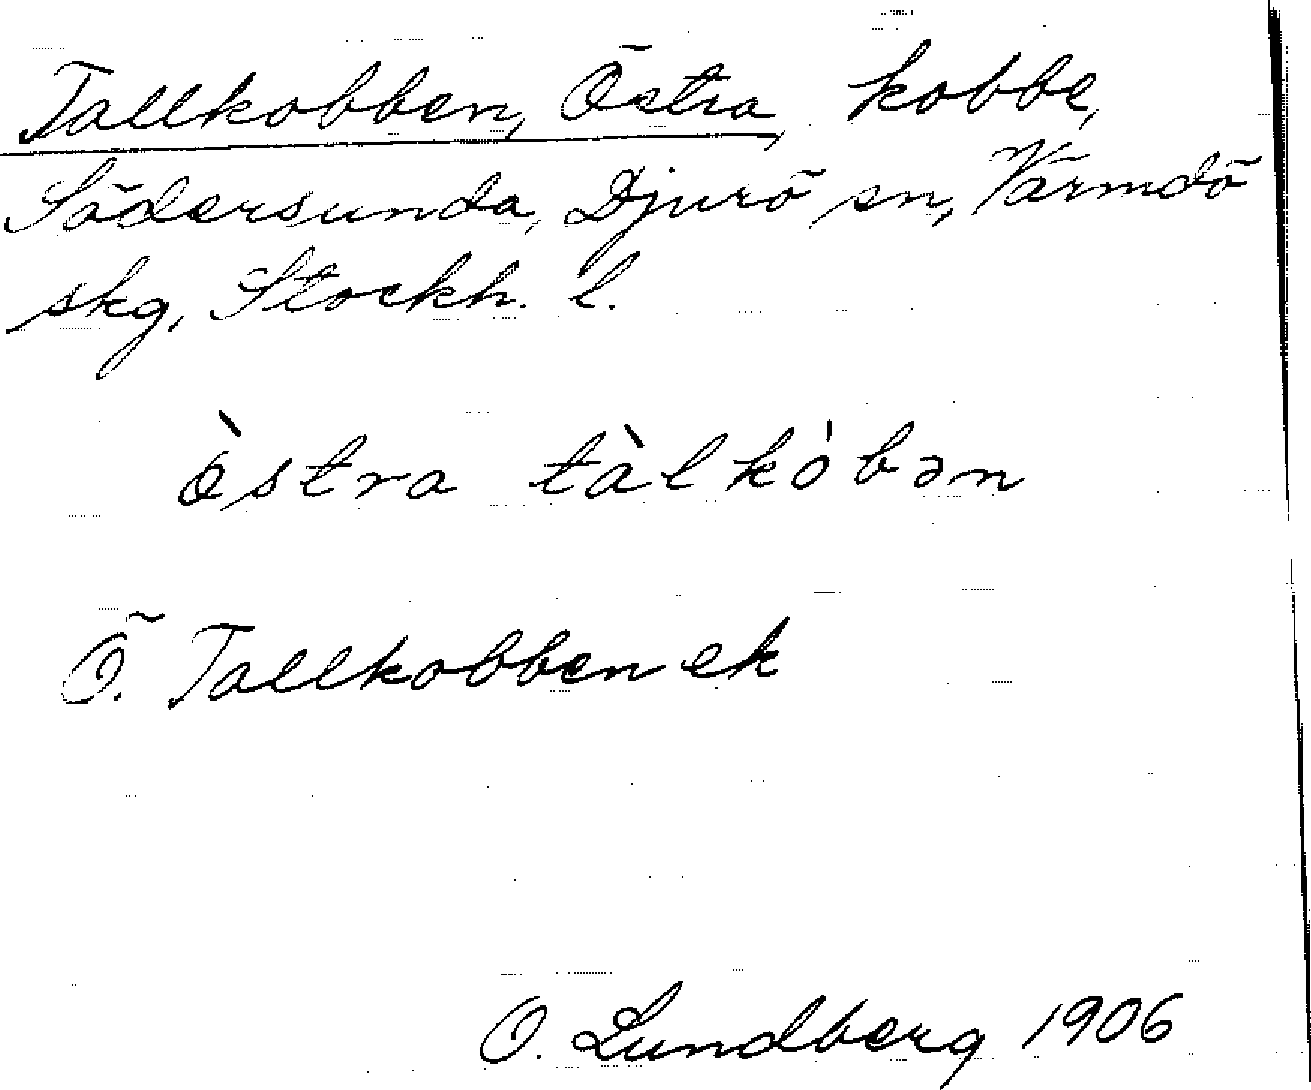 Tallkobben, Östra, kobbe,
Södersunda, Djurö sn, Värmdö
skg, Stockh. l.
ò̀stra tàlkòbən
Ö. Tallkobben ek
O. Lundberg 1906